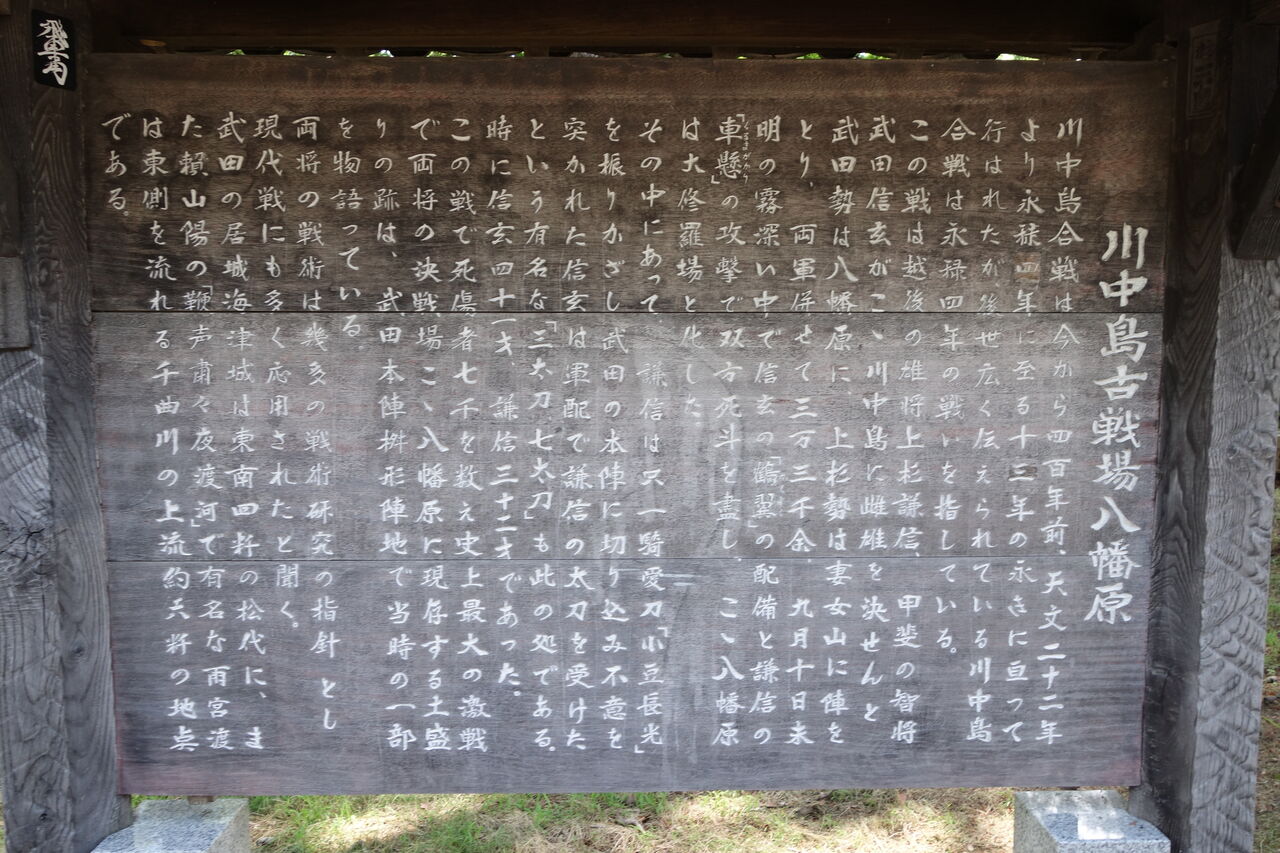 川中島古戦場八幡原
川中島合戦は今から四百年前、天文二十二年
より永禄四年に至る十三年の永きに亘って
行はれたが、後世広く伝えられている川中島
合戦は永禄四年の戦いを指している。
この戦は越後の雄将上杉謙信、甲斐の智将
武田信玄がこゝ川中島に雌雄を決せんと
武田勢は八幡原に、上杉勢は妻女山に陣を
とり、両軍併せて三万三千余、九月十日未
明の霧深い中で信玄の「鶴翼」の配備と謙信の
「車懸」の攻撃で双方死斗を盡し、こゝ八幡原
くるまがかり
は大修羅場と化した
その中にあって 謙信は只一騎愛刀「小豆長光」
を振りかざし武田の本陣に切り込み不意を
突かれた信玄は軍配で謙信の太刀を受けた
という有名な「三太刀七太刀」も此の処である。
時に信玄四十一才、謙信三十二才であった。
この戦で死傷者七千を数え史上最大の激戦
で両将の決戦場こゝ八幡原に現存する土盛
りの跡は、武田本陣桝形陣地で当時の一部
を物語っている。
両将の戦術は幾多の戦術研究の指針とし
現代戦にも多く応用されたと聞く。
武田の居城海津城は東南四粁の松代に、ま
た頼山陽の「鞭声粛々夜渡河」で有名な雨宮渡
は東側を流れる千曲川の上流約六粁の地点
である。